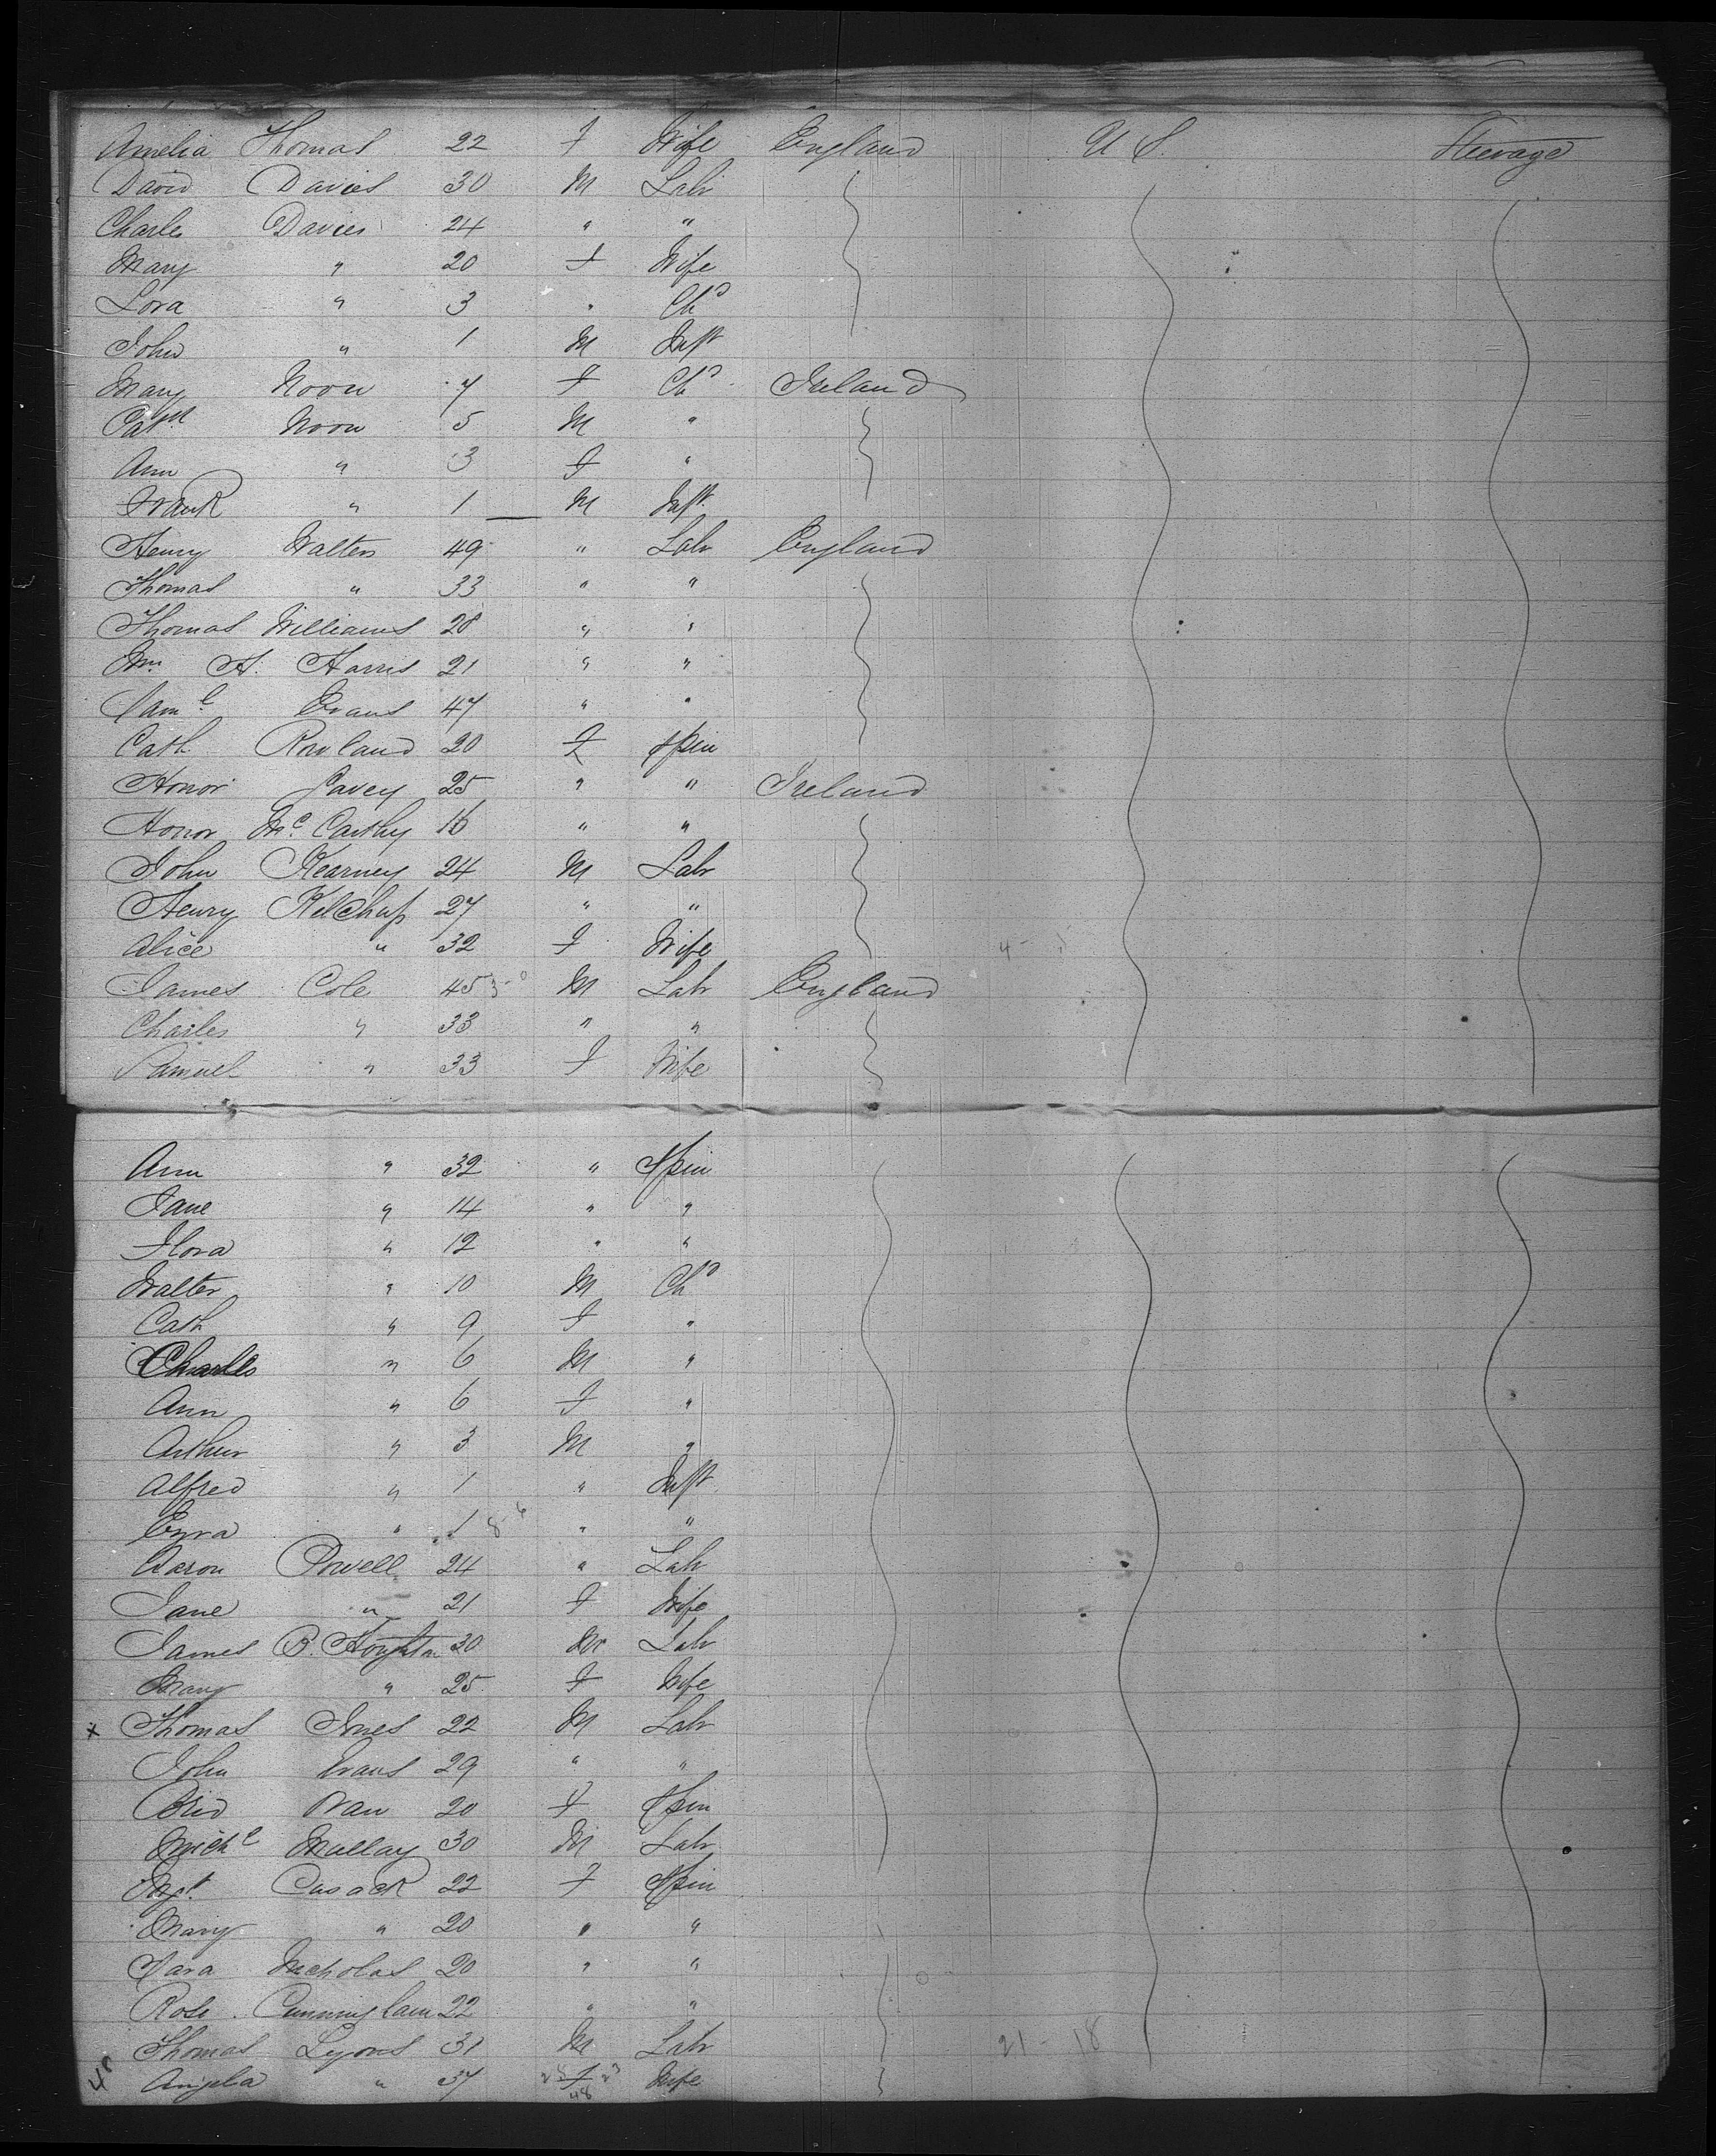 Amelia Thomas 22 F Wife England U S. Steerage
David Davies 30 M Labr
Charles Davies 24 " "
Mary " 20 F Wife
Lora " 3 " Chd
John " 1 M Inft
Mary Noon 7 F Chd Ireland
Patk Noon 5 M "
Ann " 3 F "
Frank " 1 M Inft
Henry Walters 49 " Labr England
Thomas " 33 " "
Thomas Williams 28 " "
Wm. H. Harris 21 " "
Saml Evans 47 " "
Cath Rowland 20 F Spin
Honor Pavey 25 " " Ireland
Honor McCarthy 16 " "
John Kearney 24 M Labr
Henry 27 " "
Alice " 32 F Wife 4 - 5
James Cole 45 M Labr England
Charles " 33 " "
Samuel " 33 F Wife
Ann " 32 " Spin
Jane " 14 " "
Flora " 12 " "
Walter " 10 M Chd
Cath " 9 F "
Charles " 6 M "
Ann " 6 F "
Arthur " 3 M "
Alfred " 1 " Inft
Ezra " 1 " "
Aaron Powell 24 " Labr
Jane " 21 F Wife
James B. Houghton 30 M Labr
Mary " 25 F Wife
x Thomas Jones 22 M Labr
John Evans 29 " "
Brid 20 F Spin
Michl Mullay 30 M Labr
Mgt. Cusack 22 F Spin
Mary " 20 " "
Sara Nicholas 20 " "
Rose Cunningham 22 " "
Thomas Lyons 31 M Labr 21 - 18
48 Angela " 37 F Wife
48